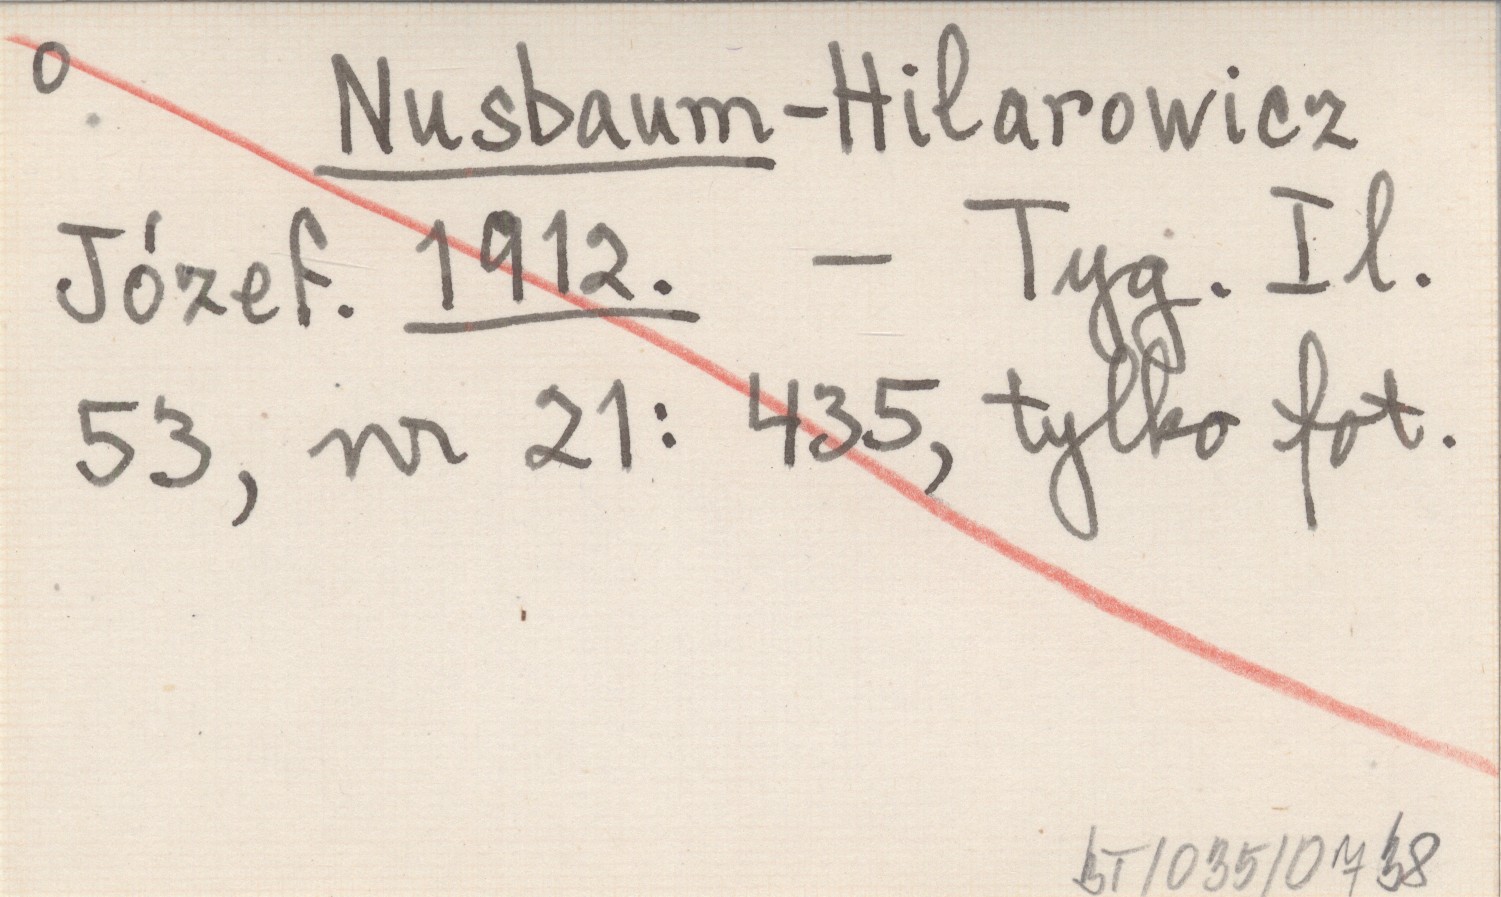 o
Nusbaum-Hilarowicz
Józef. 1912. — Tyg. Il.
53, nr 21: 435, tylko fot.